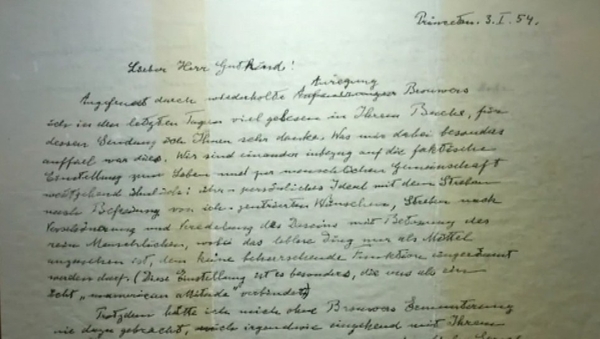 Princeton. 3. I. 54.
Lieber Herr Gutkind!
Anregung
Angefeuert durch wiederholte Brouwers
ich in den letzten Tagen viel gelesen in Ihrem Buche, für
dessen Sendung ich Ihnen sehr danke. Was mir dabei besonders
auffiel war dies. Wir sind einander inbezug auf die faktische
Einstellung zum Leben und zur menschlichen Gemeinschaft
weitgehend ähnlich: über-persönliches Ideal mit dem Streben
nach Befreiung von ich-zentrierten Wünschen, Streben nach
Verschönerung und Veredelung des Daseins mit Betonung des
rein Menschlichen, wobei das leblose Ding nur als Mittel
anzusehen ist, dem keine beherrschende Funktion eingeräumt
werden darf. (Diese Einstellung ist es besonders, die uns als ein
echt „unamerican attitude" verbindet)
Trotzdem hätte ich mich ohne Brouwers Ermunterung
nie dazu gebracht, mich irgendwie eingehend mit Ihrem